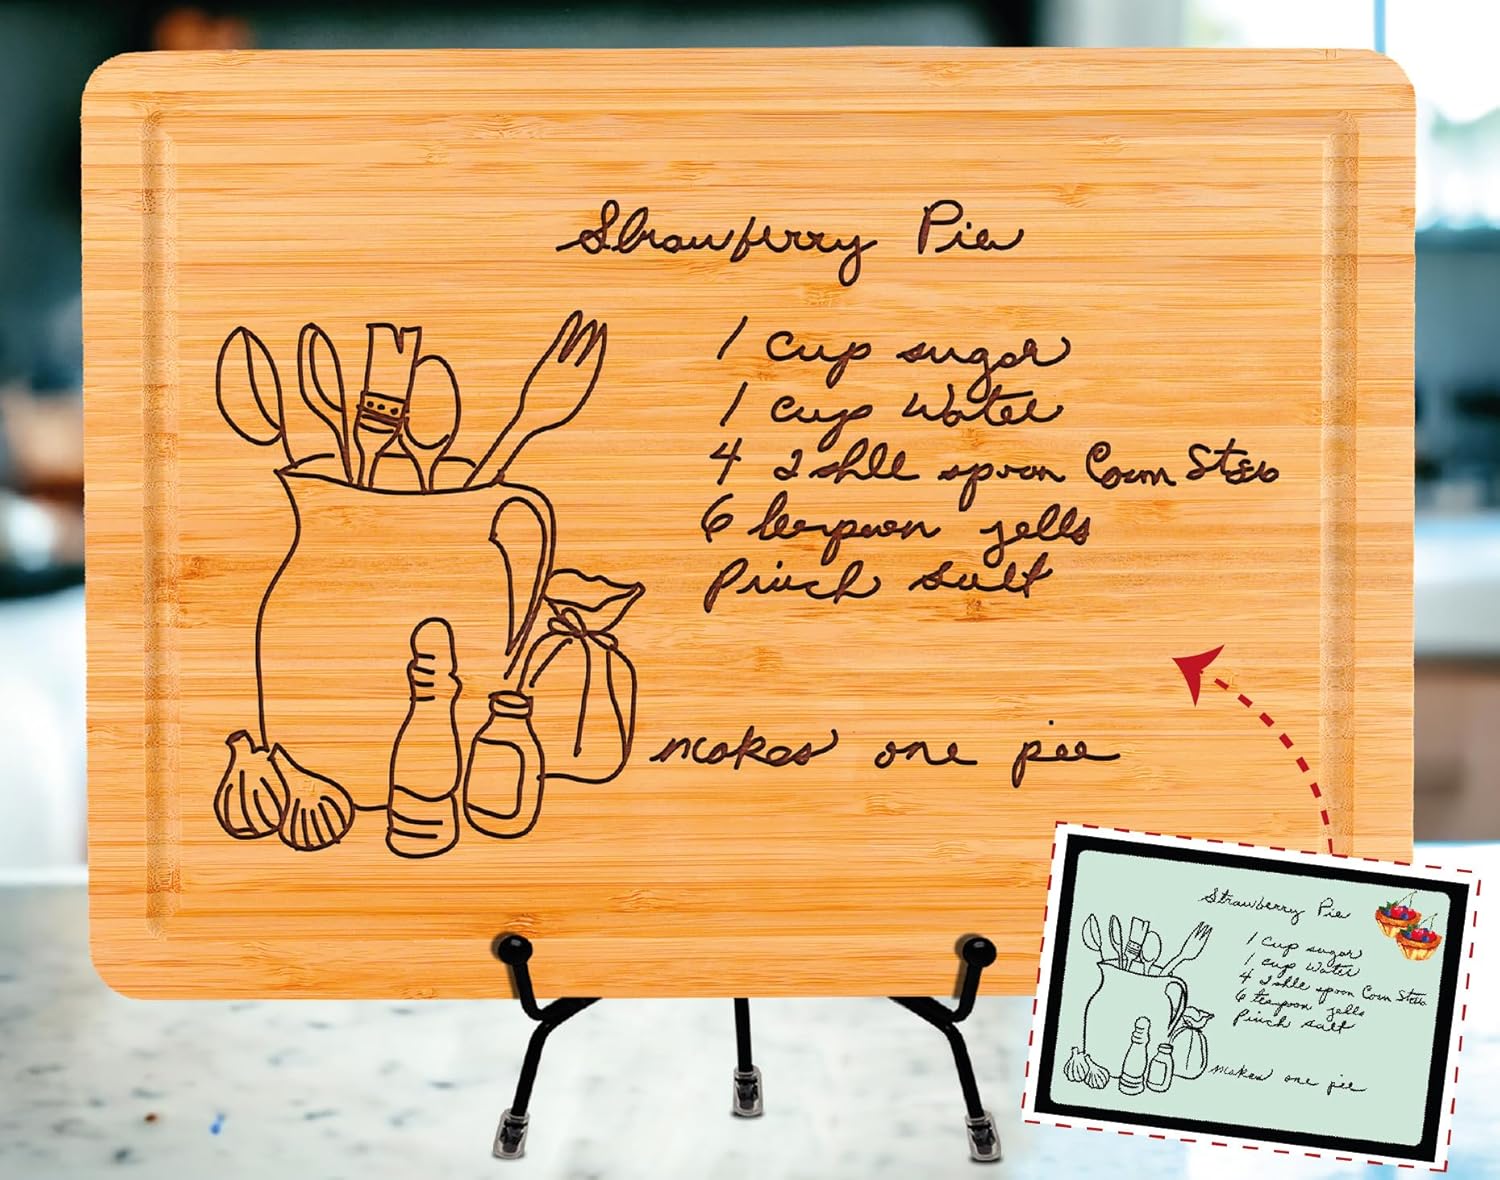 Strawberry Pie
1 cup sugar
1 cup water
4 spoon Corn
6 teaspoon jello
Pinch salt
makes one pie
Strawberry Pie
1 cup sugar
1 cup water
4 spoon Corn
6 teaspoon jello
Pinch salt
makes one pie